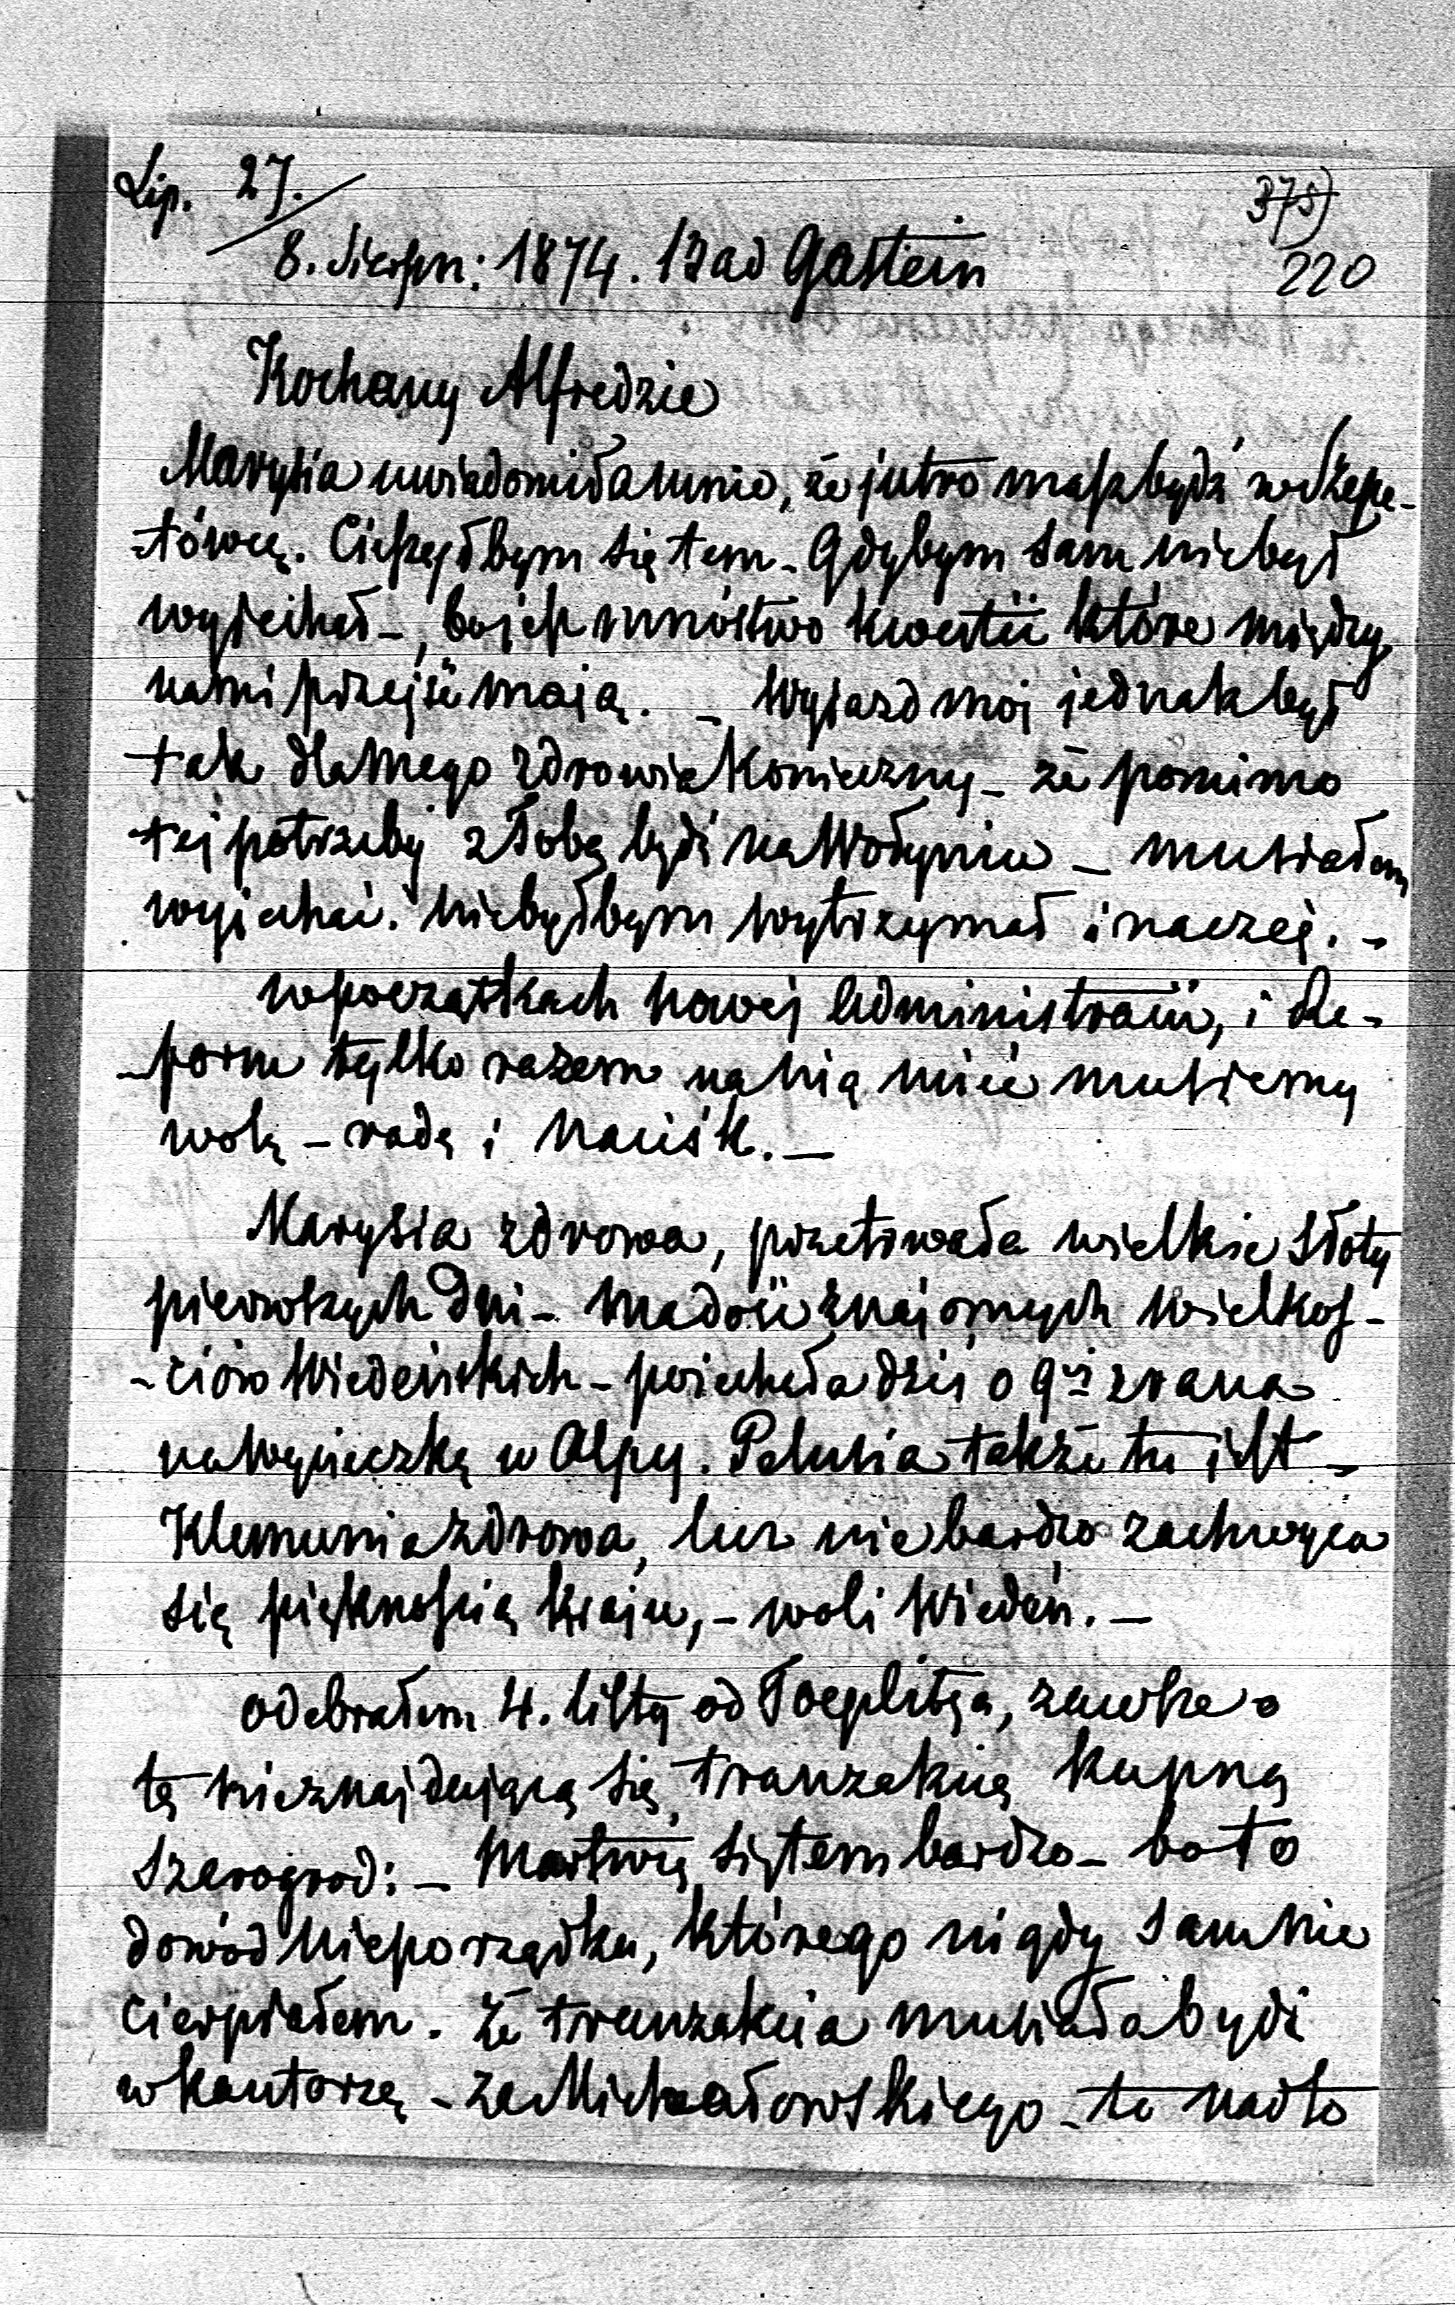 Lip. 27.
375)
8. Sierpn: 1874. Bad Gastein
220
Kochany Alfredzie
Marysia uwiadomiła mnie, że jutro masz bydź w Szepe-
-tówcę. Cieszyłbym się tem - Gdybym sam niebył
wyjechał -, bo jest mnóstwo kwestii które między
nami przejść mają. - Wyjazd moj jednak był
tak dla mego zdrowia konieczny - że pomimo
tej potrzeby z Tobą bydź na Wołyniu - musiałem
wyjechać. Niebyłbym wytrzymał inaczej. -
w początkach nowej Administracii, i Re-
-form tylko razem na nią mieć musiemy
wolę - radę i nacisk. -
Marysia zdrowa, przetrwała wielkie słoty
pierwszych Dni - ma dość znajomych wielkoś-
-ciów Wiedeńskich - pojechała dziś o 9ej zrana
na wycieczkę w Alpy. Pelusia także tu jest -
Klemunia zdrowa, lecz nie bardzo zachwyca
się pięknością kraju, - woli Wiedeń. -
Odebrałem 4. listy od Toeplitza, zawsze o
tę nieznajdującą się tranzakcią kupną
Szarogrod: - Martwię się tem bardzo - bo to
dowód nieporządku, którego nigdy sam nie
cierpiałem. Że tranzakcia musiała bydź
w kantorzę - za Michałowskiego - to nadto